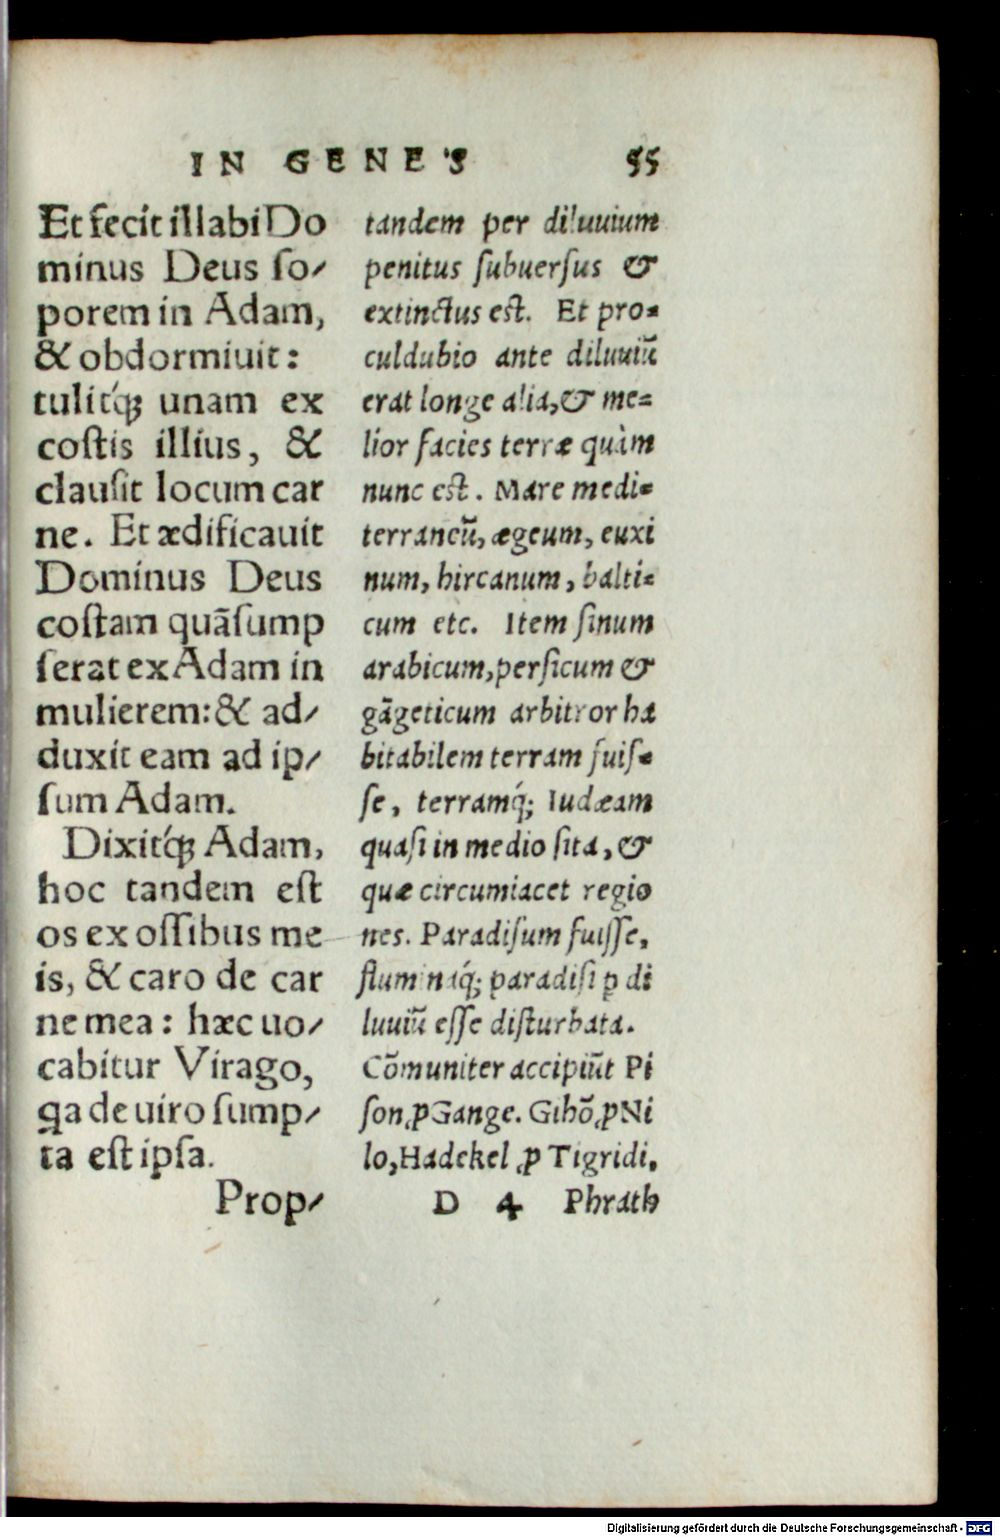 IN GENES 55
Et fecit illabi Do
minus Deus ſo⸗
porem in Adam,
& obdormiuit:
tulitq́ꝫ unam ex
coſtis illius, &
clauſit locum car
ne. Et ædificauit
Dominus Deus
coſtam quãſump
ſerat ex Adam in
mulierem: & ad⸗
duxit eam ad ip⸗
ſum Adam.
Dixitq́ꝫ Adam,
hoc tandem eſt
os ex oſſibus me
is, & caro de car
ne mea: hæc uo⸗
cabitur Virago,
qa de uiro ſump⸗
ta eſt ipſa.
Prop⸗
tandem per diluuium
penitus ſubuerſus &
extinctus eſt. Et pro⸗
culdubio ante diluuiũ
erat longe alia, & me⸗
lior facies terræ quàm
nunc eſt. Mare medi⸗
terraneũ, ægeum, euxi
num, hircanum, balti⸗
cum etc. Item ſinum
arabicum, perſicum &
gãgeticum arbitror ha
bitabilem terram fuiſ⸗
ſe, terramq́; Iudæam
quaſi in medio ſita, &
quæ circumiacet regio
nes. Paradiſum fuiſſe,
fluminaq́; paradiſi ꝑ di
luuiũ eſſe diſturbata.
Cõmuniter accipiũt Pi
ſon, ꝓ Gange. Gihõ, ꝓ Ni
lo, Hadekel, ꝓ Tigridi,
D 4 Phrath
Digitalisierung gefördert durch die Deutsche Forschungsgemeinschaft - DFG